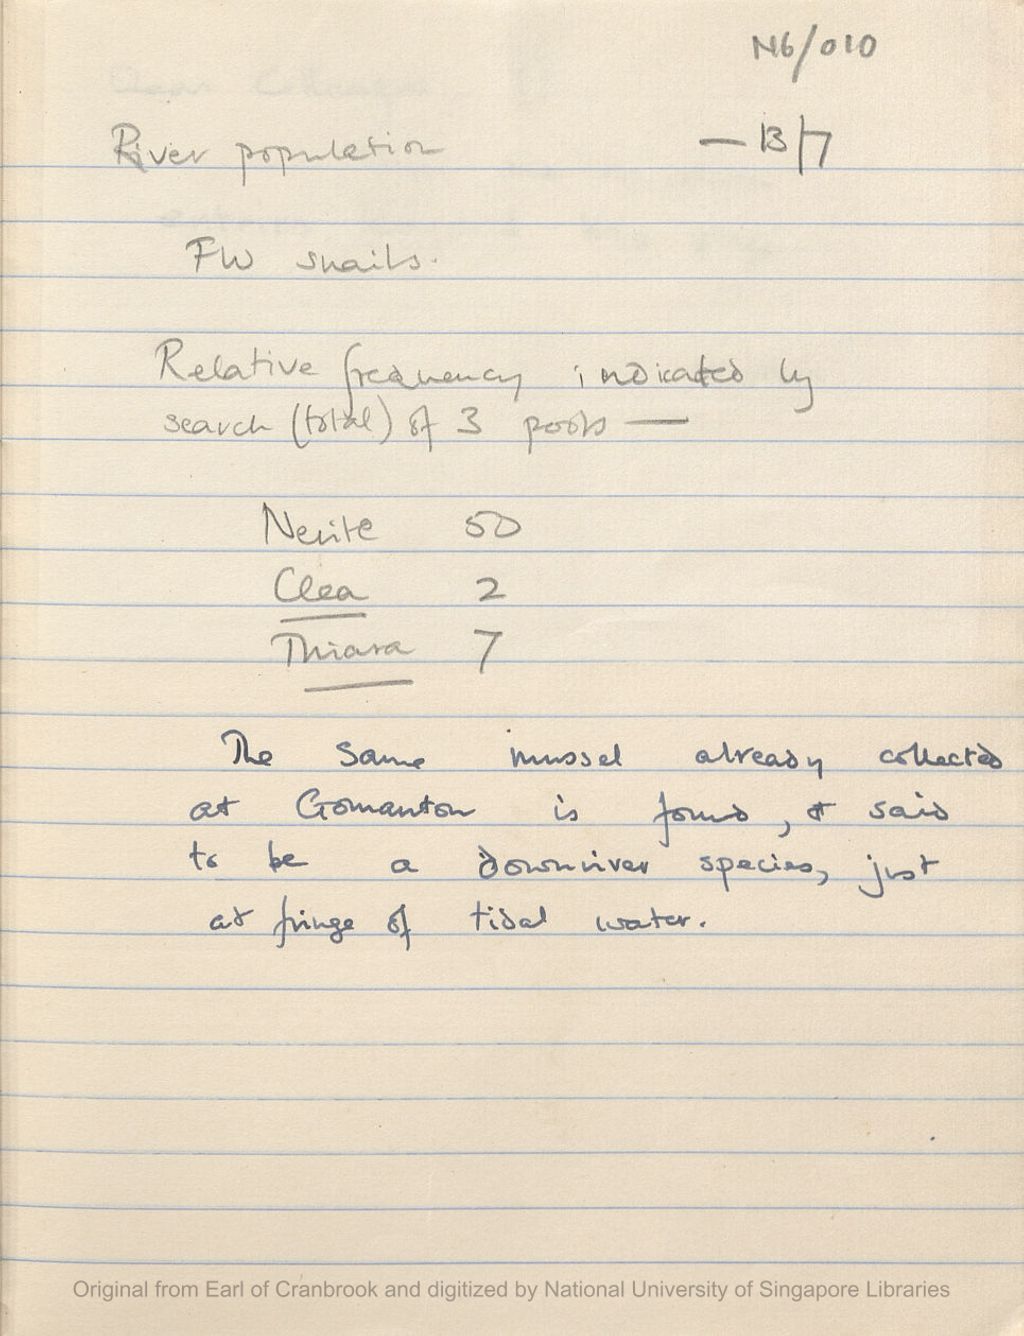 N6/010
River population — 13/7
FW snails.
Relative frequency indicated by
search (total) of 3 pools —
Nerite 50
Clea 2
Thiara 7
The same mussel already collected
at Gomanton is found, & said
to be a downriver species, just
at fringe of tidal water.
Original from Earl of Cranbrook and digitized by National University of Singapore Libraries